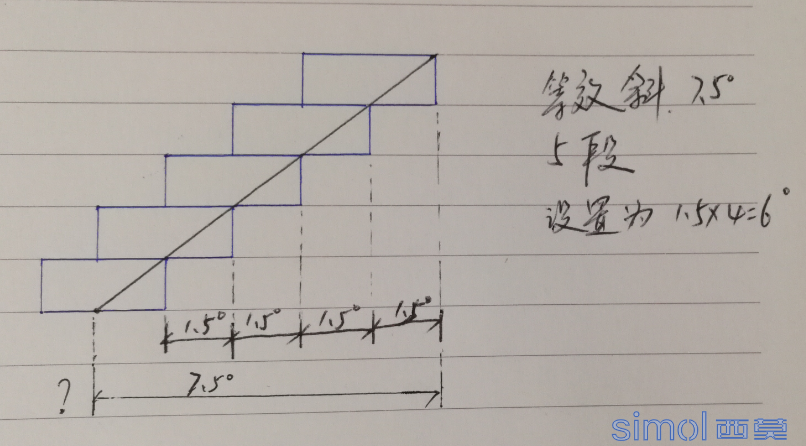 等效斜 7.5°
5段
设置为 1.5×4=6°
1.5° 1.5° 1.5° 1.5°
? 7.5°
simol西莫